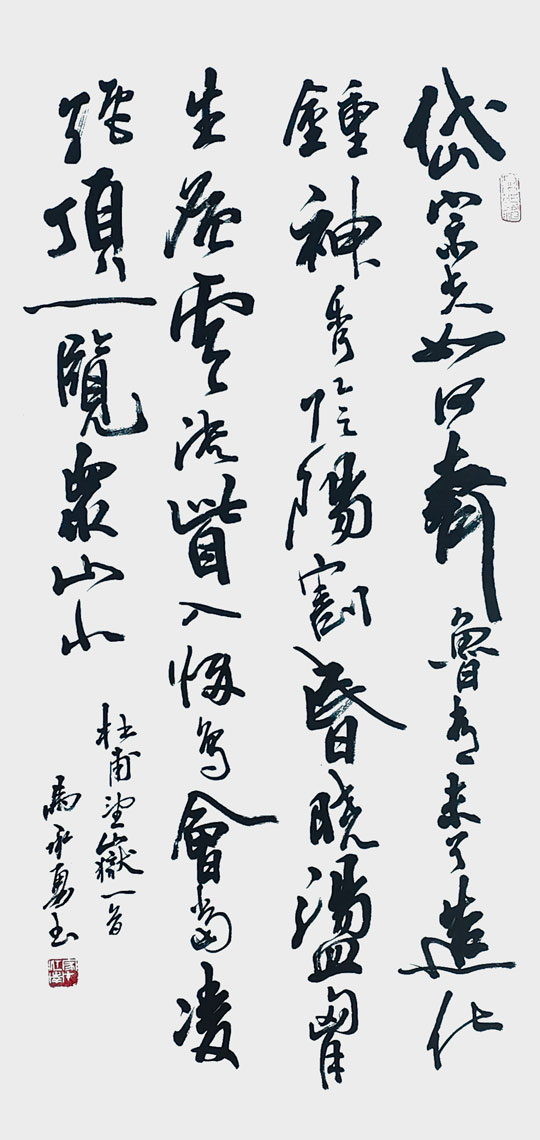 岱宗夫如何齊魯青未了造化
鍾神秀陰陽割昏曉盪胷
生層雲決眥入歸鳥會當凌
絕頂一覽眾山小
杜甫望嶽一首
馬承勇書